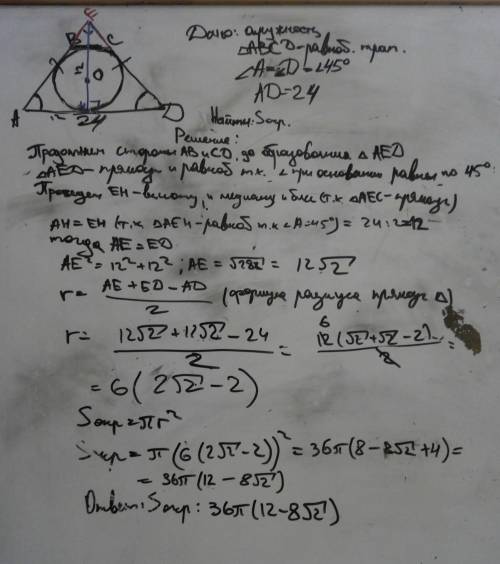 E
B C
r
O
A 24 D
Дано: окружность
ABCD-равноб. трап.
∠A=∠D=45°
AD=24
Найти: Sокр.
Решение:
Продолжим стороны AB и CD, до образования △ AED
△AED- прямоуг и равноб т.к. ∠ при основании равны по 45°.
Проведем EH-высоту, и медиану и бисс (т.к △AEC-прямоуг)
AH=EH (т.к. △AEH-равноб т.к ∠A=45°) = 24:2=12
тогда AE=ED
AE²=12²+12²; AE=√288 = 12√2
r= AE+ED-AD / 2 (формула радиуса прямоуг △)
r= 12√2+12√2-24 / 2 = 6 12(√2+√2-2) / 2 =
= 6(2√2-2)
Sокр=πr²
Sокр= π(6(2√2-2))² = 36π(8-8√2+4)=
= 36π(12-8√2)
Ответ: Sокр: 36π(12-8√2)